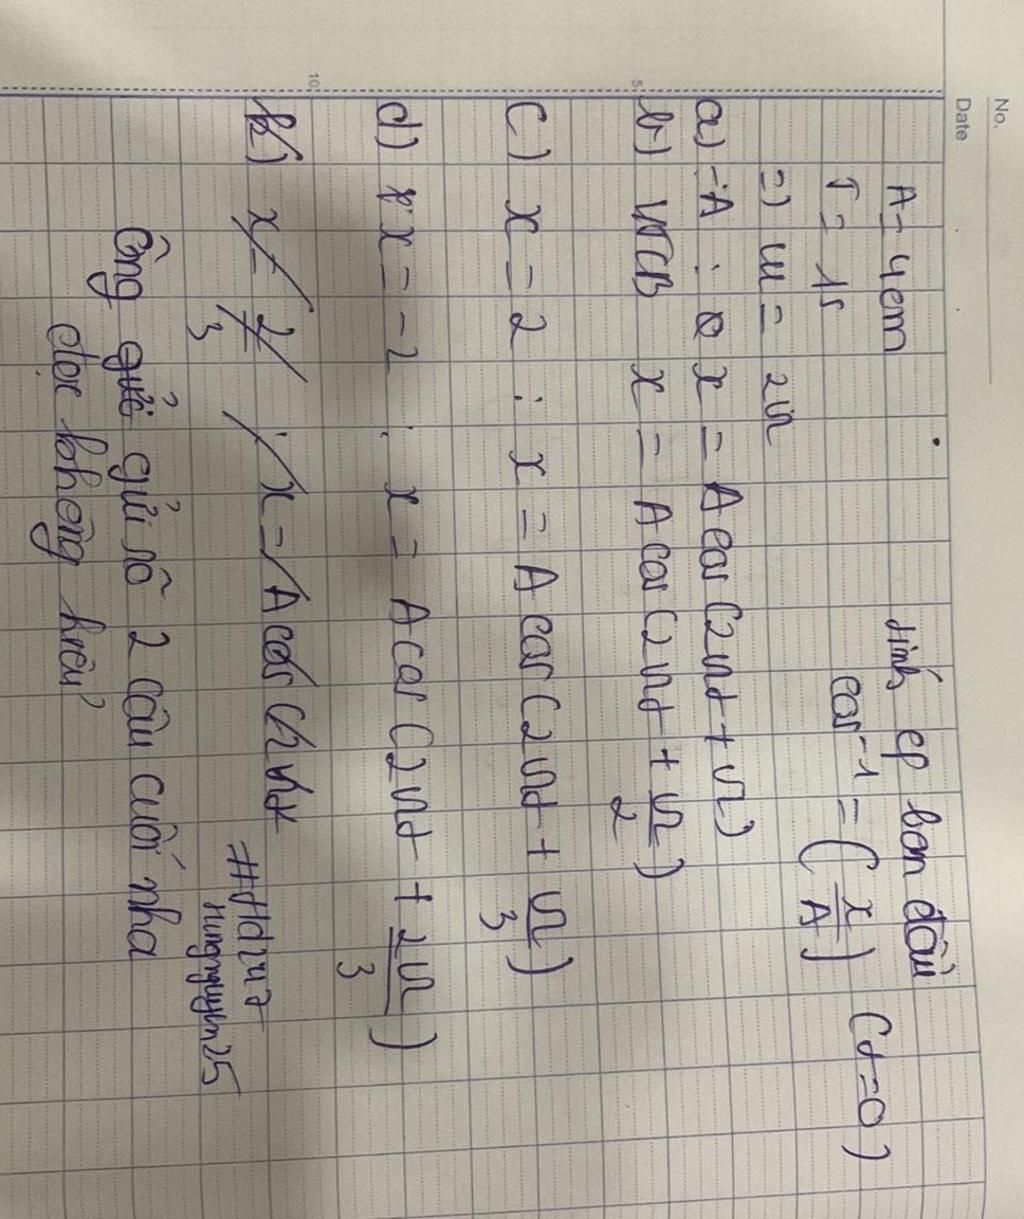 No.
Date
A = 4cm
tính φ ban đầu
T = 1s
cos⁻¹ = (x/A) (t=0)
=) ω = 2π
a) -A : x = A cos (2πt + π)
b) VTCB x = A cos (2πt + π/2)
5
c) x = 2 : x = A cos (2πt + π/3)
d) x = -2 : x = A cos (2πt + 2π/3)
10
x = 2/3 : x = A cos (2πt
#Hd247
nungnguyen25
Ông gửi rõ 2 câu cuối nha
đọc không hiểu